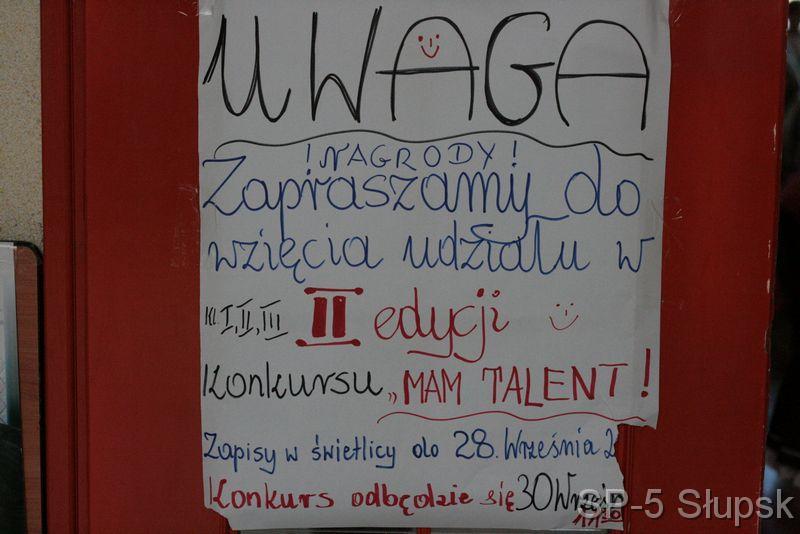 UWAGA
! NAGRODY !
Zapraszamy do
wzięcia udziału w
kl. I, II, III II edycji
Konkursu „MAM TALENT!
Zapisy w świetlicy do 28. Września
Konkurs odbędzie się 30
SP-5 Słupsk